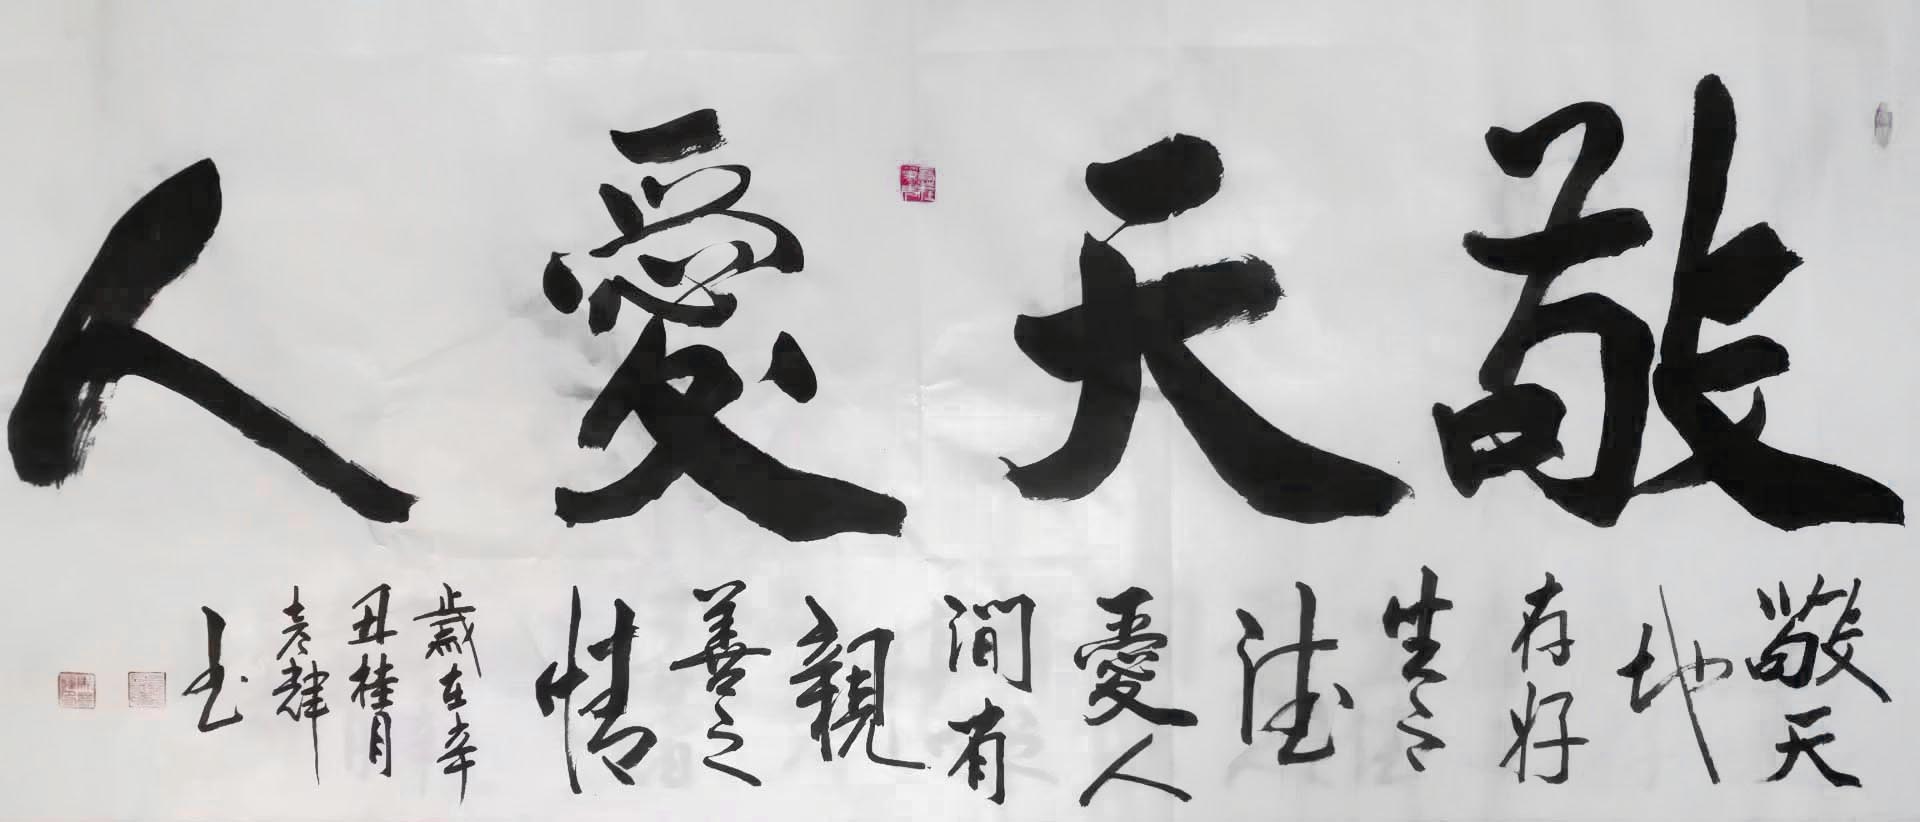 敬天愛人
敬天
地
存好
生之
德
愛人
間有
親
善之
情
歲在辛
丑桂月
书